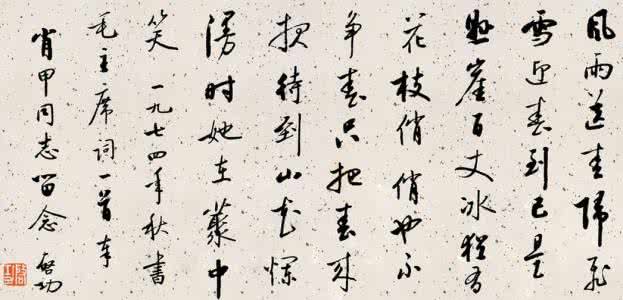 風雨送春歸飛
雪迎春到已是
悬崖百丈冰猶有
花枝俏俏也不
争春只把春来
报待到山花爛
漫时她在叢中
笑 一九七四年秋書
毛主席詞一首奉
肖甲同志留念 啓功